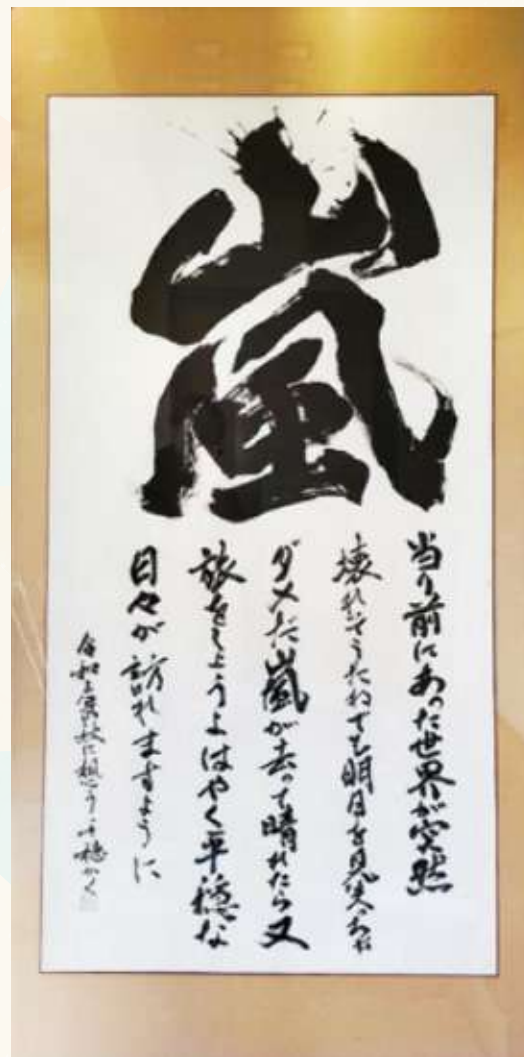 嵐
当り前にあった世界が突然
壊れそうだねでも明日を見失っちゃ
ダメだ嵐が去って晴れたら又
旅をしようよはやく平穏な
日々が訪れますように
令和 秋に想う 千穂かく